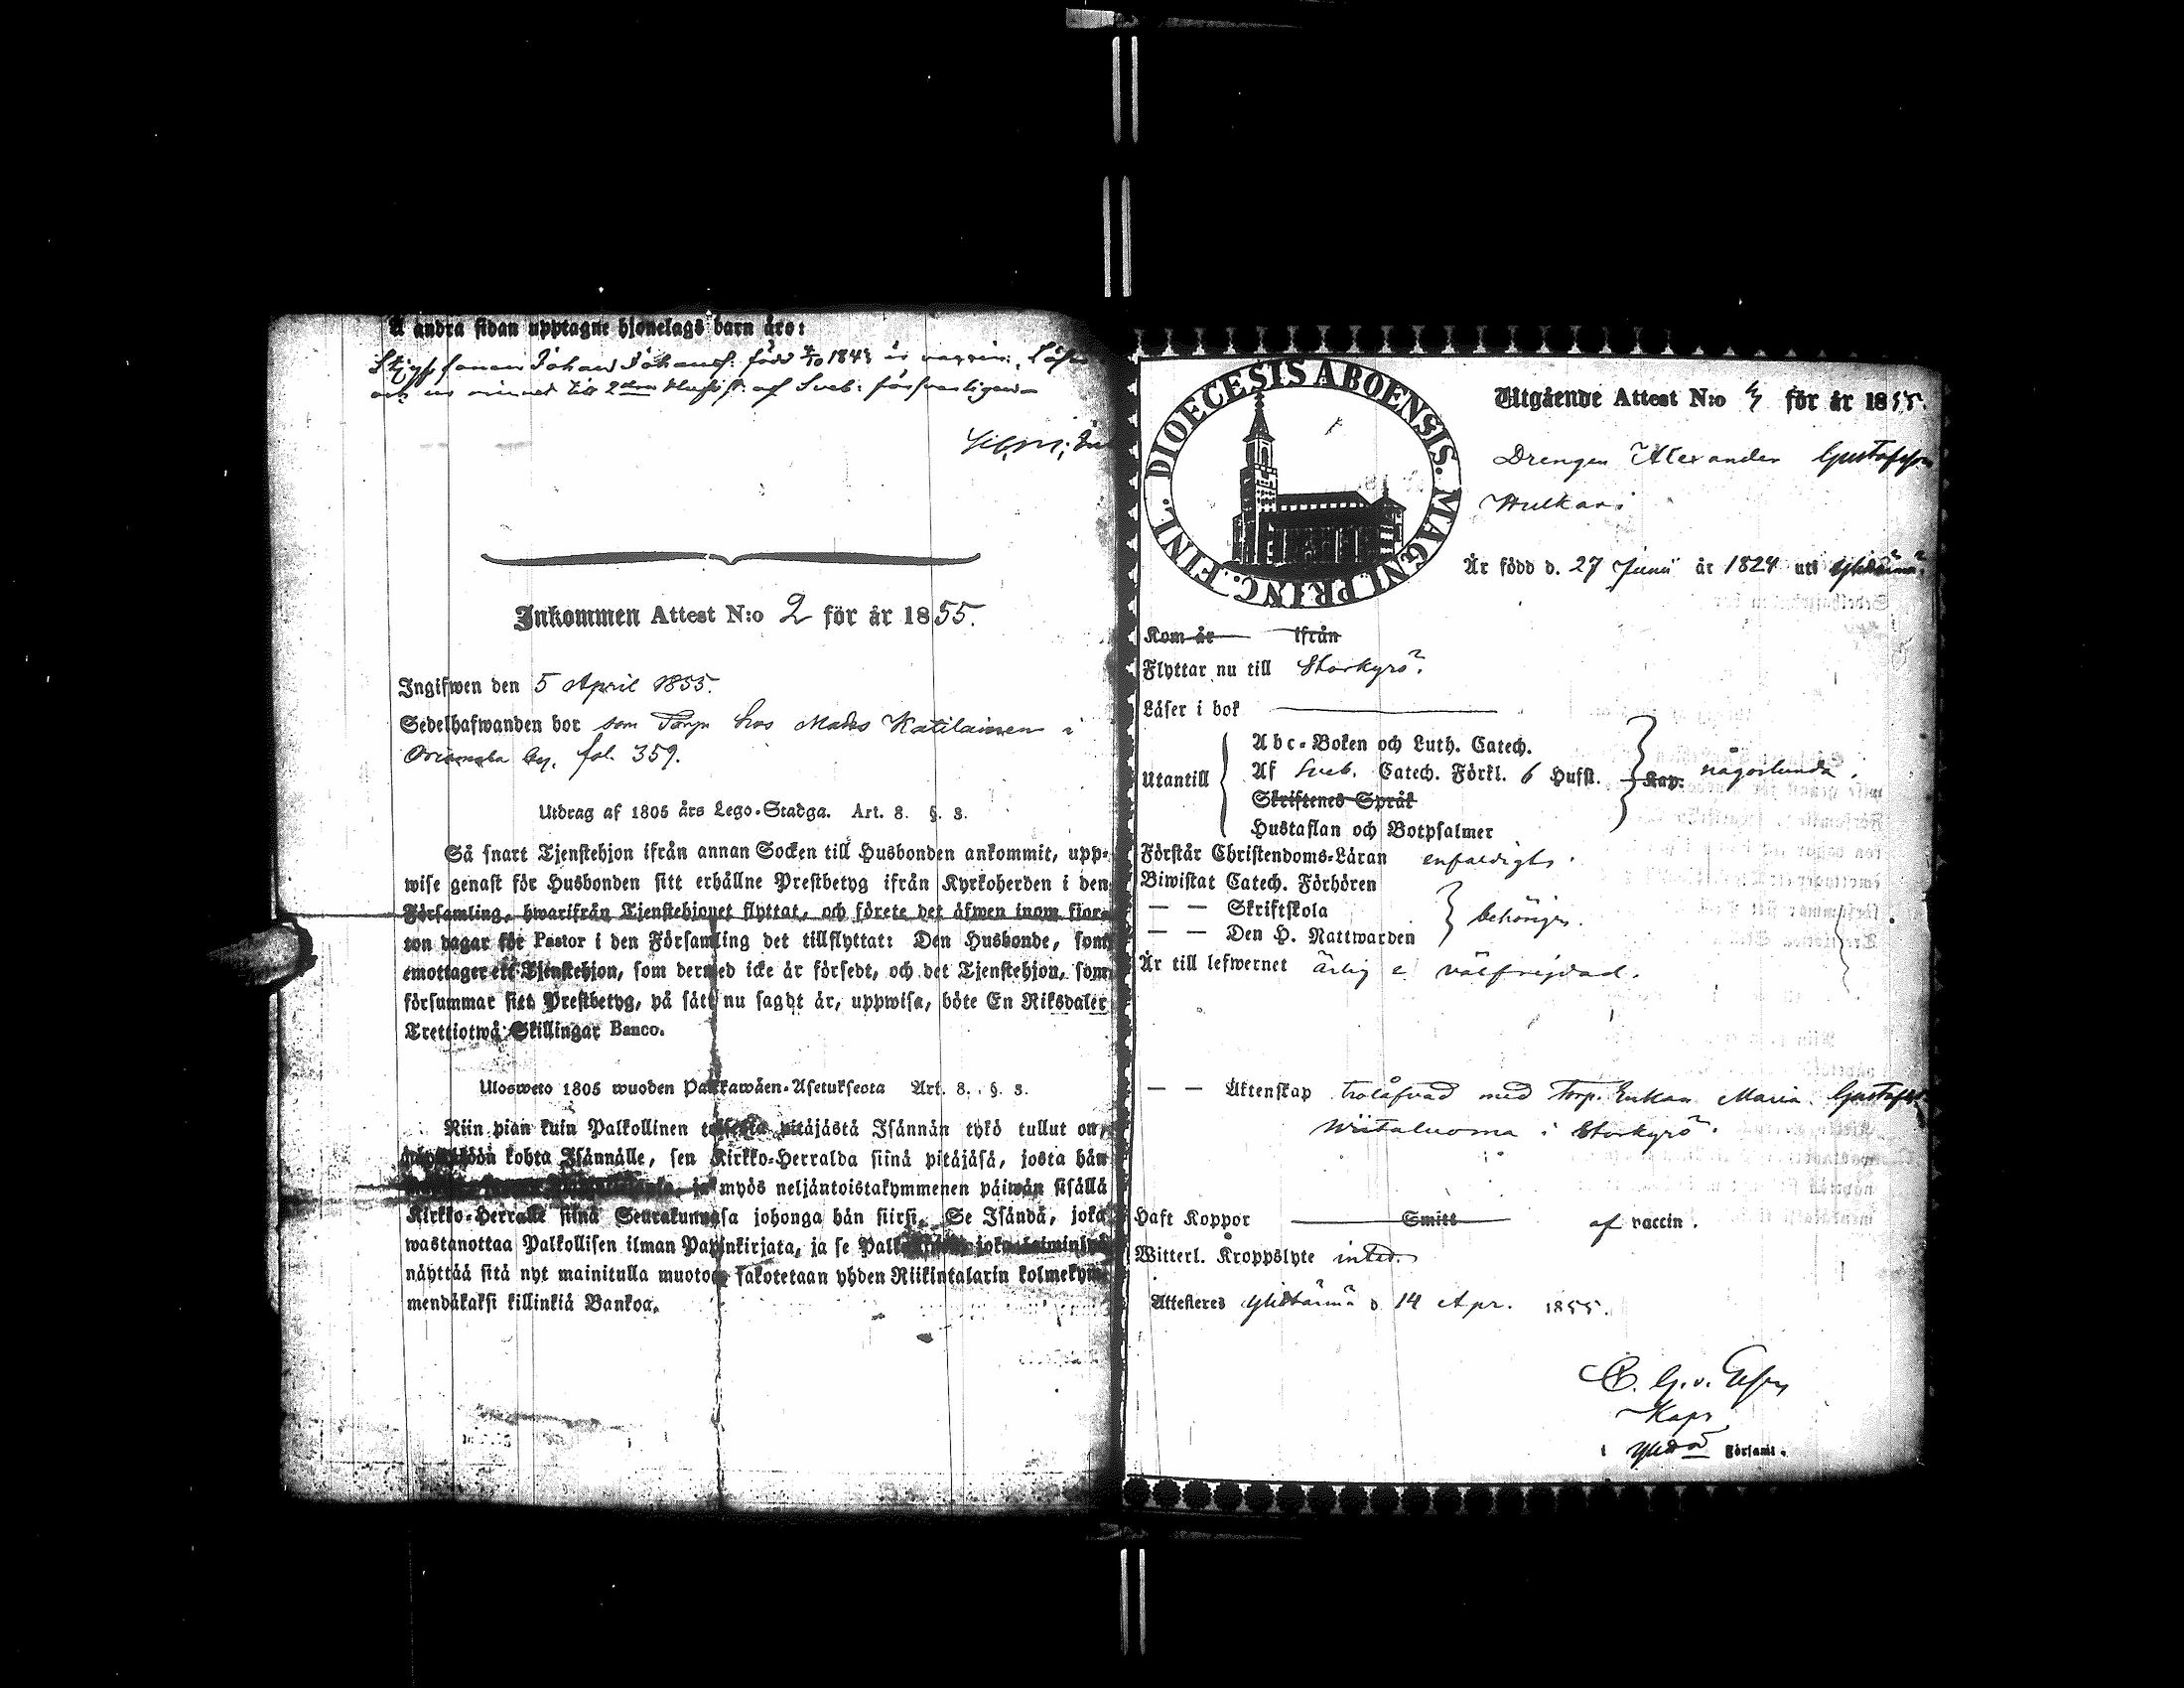 Å andra sidan upptagne hjonelags barn äro:
Johan född 1843 är vaccin.
och 2 af Sveb: försvarligen
Inkommen Attest N:o 2 för år 1855.
Ingifwen den 5 April 1855.
Sedelhafwanden bor som Torp. hos Mats Katilainen i
by. fol. 359.
Utdrag af 1805 års Lego-Stadga. Art. 8. §. 3.
Så snart Tjenstehjon ifrån annan Socken till Husbonden ankommit, upp-
wise genast för Husbonden sitt erhållne Prestbetyg ifrån Kyrkoherden i den
Församling, hwarifrån Tjenstehjonet flyttat, och förete det äfwen inom fior-
ton dagar för Pastor i den Församling det tillflyttat: Den Husbonde, som
emottager ett Tjenstehjon, som dermed icke är försedt, och det Tjenstehjon, som
försummar sitt Prestbetyg, på sätt nu sagdt är, uppwisa, böte En Riksdaler
Trettiotwå Skillingar Banco.
Ulosweto 1805 wuoden Palkkawäen-Asetuksesta Art. 8. §. 3.
Niin pian kuin Palkollinen toisesta pitäjästä Isännän tykö tullut on,
kohta Isännälle, sen Kirkko-Herralda siinä pitäjäsä, josta hän
ja myös neljäntoistakymmenen päiwän sisällä
Kirkko-Herralle siinä Seurakunnasa johonga hän siirsi. Se Isändä, joka
wastanottaa Palkollisen ilman Papinkirjata, ja se joka
näyttää sitä nyt mainitulla muotoa, sakotetaan yhden Riikintalarin kolmekym-
mendäkaksi killinkiä Bankoa.
DIOECESIS ABOENSIS. MAGNI PRINC. FINL.
Utgående Attest N:o 3 för år 1855.
Drengen Alexander Gustafsson
Hulkari
Är född d. 27 Junii år 1824 uti Ylistarmå.
Kom år ifrån
Flyttar nu till Storkyro.
Läser i bok
Utantill
Abc-Boken och Luth. Catech.
Af Sveb. Catech. Förkl. 6 Hufst. Kap. någorlunda.
Skriftenes Språk
Hustaflan och Botpsalmer
Förstår Christendoms-Läran enfaldigt.
Biwistat Catech. Förhören
— — Skriftskola behörigen.
— — Den H. Nattwarden
Är till lefwernet ärlig o. välfrejdad.
— — Äktenskap trolåfvad med Torp. Enkan Maria Gustafsd.
Wiitaluoma i Storkyro.
Haft Koppor Smitt af vaccin.
Witterl. Kroppslyte intet.
Attesteras Ylistarmå d. 14 Apr. 1855.
C. G. v. Essen
Kapn
i Församl.